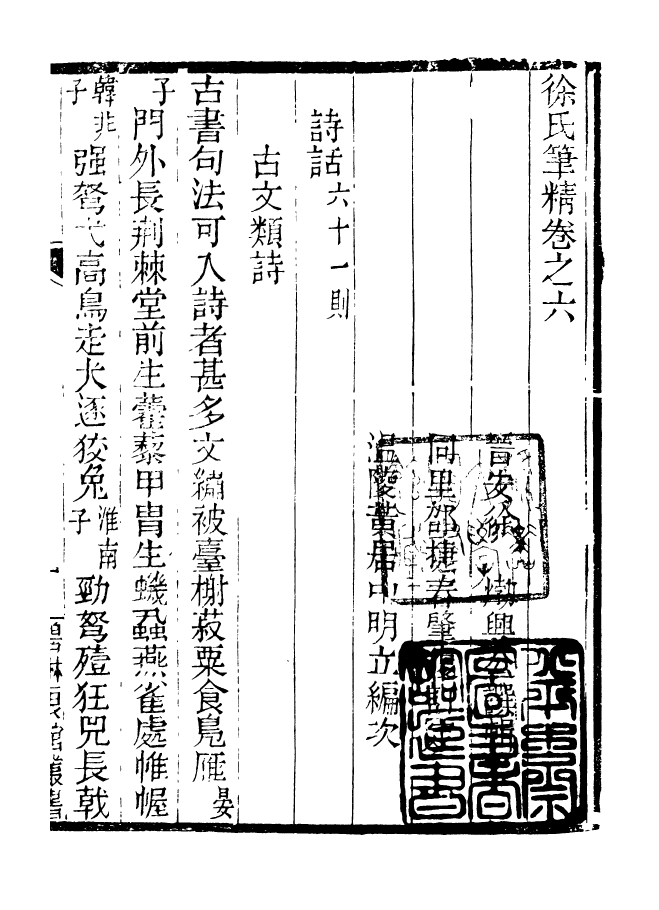 徐氏筆精卷之六
晉安徐 㶿興公
同里邵捷春肇
溫陵黃居中明立編次
詩話六十一則
古文類詩
古書句法可入詩者甚多文繃被臺榭菽粟食鳧雁晏
子門外長荆棘堂前生藿藜甲胄生蟣蝨燕雀處帷幄
韓非子强弩弋高鳥走犬逐狡兔淮南子勁弩殪狂兕長戟